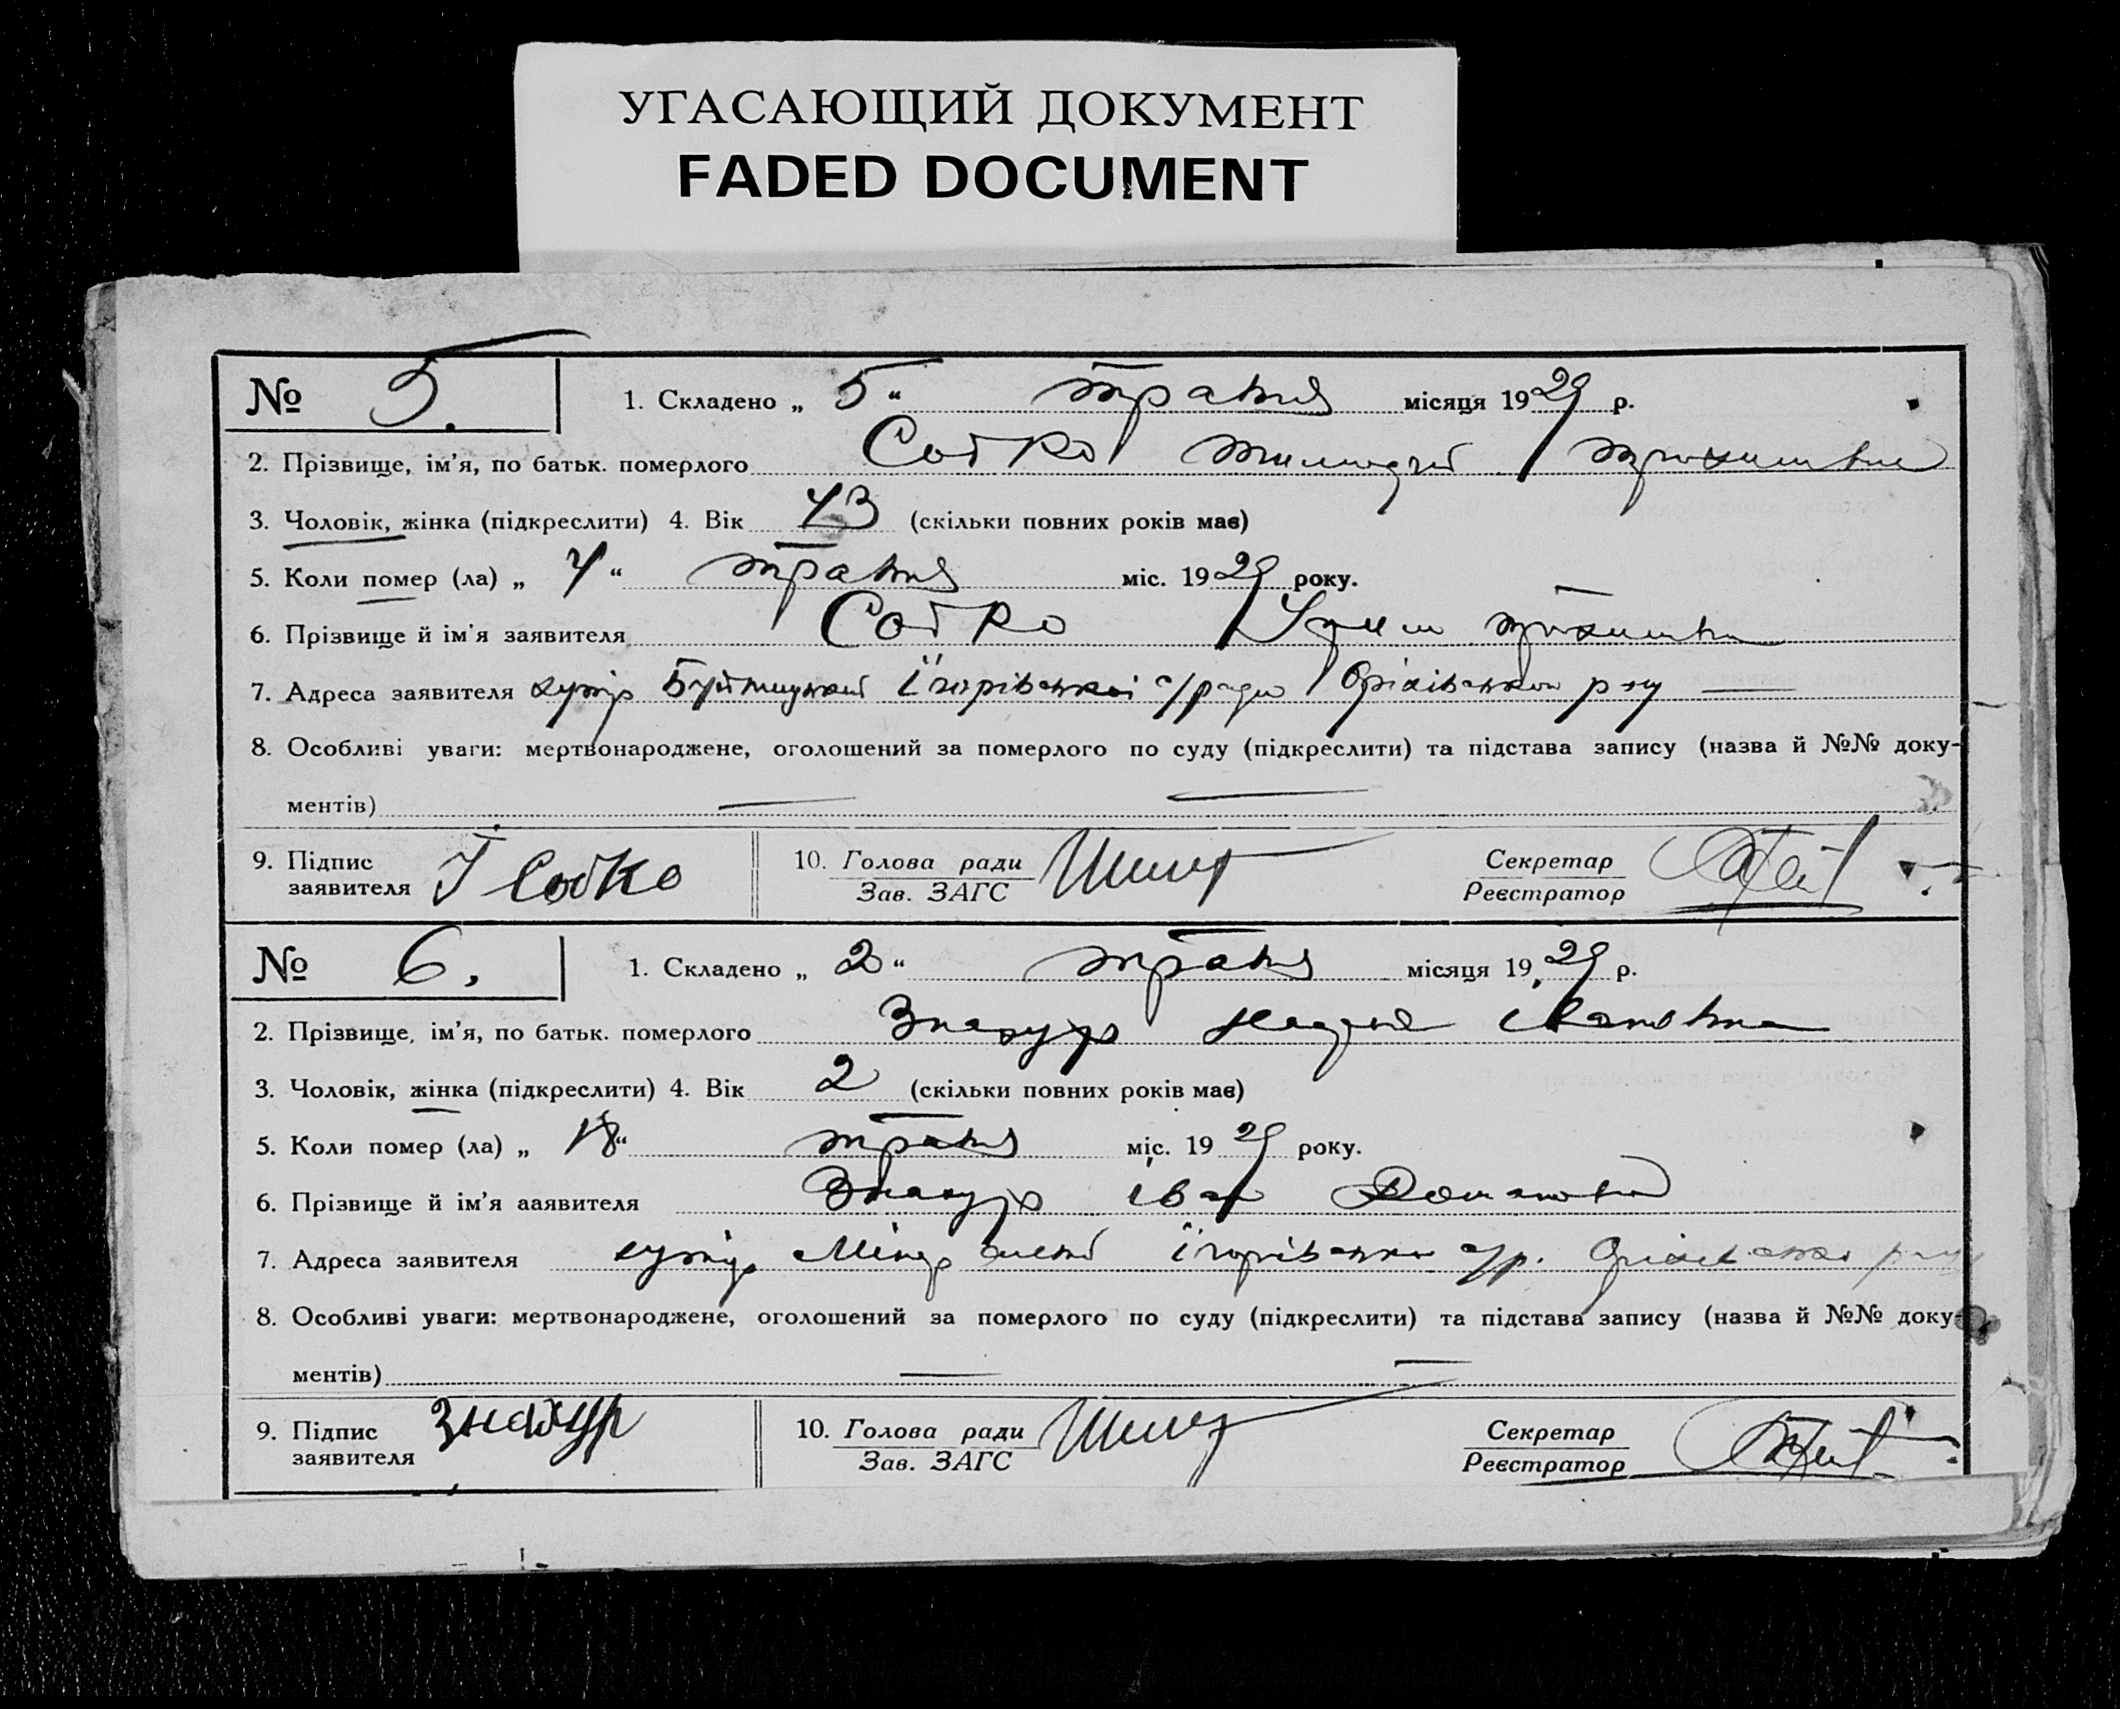 УГАСАЮЩИЙ ДОКУМЕНТ
FADED DOCUMENT
№ 5. 1. Складено „ 5 “ травня місяця 1929 р.
2. Прізвище, ім'я, по батьк. померлого Собко
3. Чоловік, жінка (підкреслити) 4. Вік 43 (скільки повних років має)
5. Коли помер (ла) „ 4 “ травня міс. 1929 року.
6. Прізвище й ім'я заявителя Собко
7. Адреса заявителя хутір Ігорівської с/ради Оріхівського р-ну
8. Особливі уваги: мертвонароджене, оголошений за померлого по суду (підкреслити) та підстава запису (назва й №№ доку-
ментів)
9. Підпис заявителя І Собко 10. Голова ради Зав. ЗАГС Секретар Реєстратор
№ 6. 1. Складено „ 2 “ травня місяця 1929 р.
2. Прізвище, ім'я, по батьк. померлого Знахур Надья Івановна
3. Чоловік, жінка (підкреслити) 4. Вік 2 (скільки повних років має)
5. Коли помер (ла) „ “ травня міс. 1929 року.
6. Прізвище й ім'я заявителя Знахур Іван Романович
7. Адреса заявителя хутір с/р.
8. Особливі уваги: мертвонароджене, оголошений за померлого по суду (підкреслити) та підстава запису (назва й №№ доку
ментів)
9. Підпис заявителя Знахур 10. Голова ради Зав. ЗАГС Секретар Реєстратор